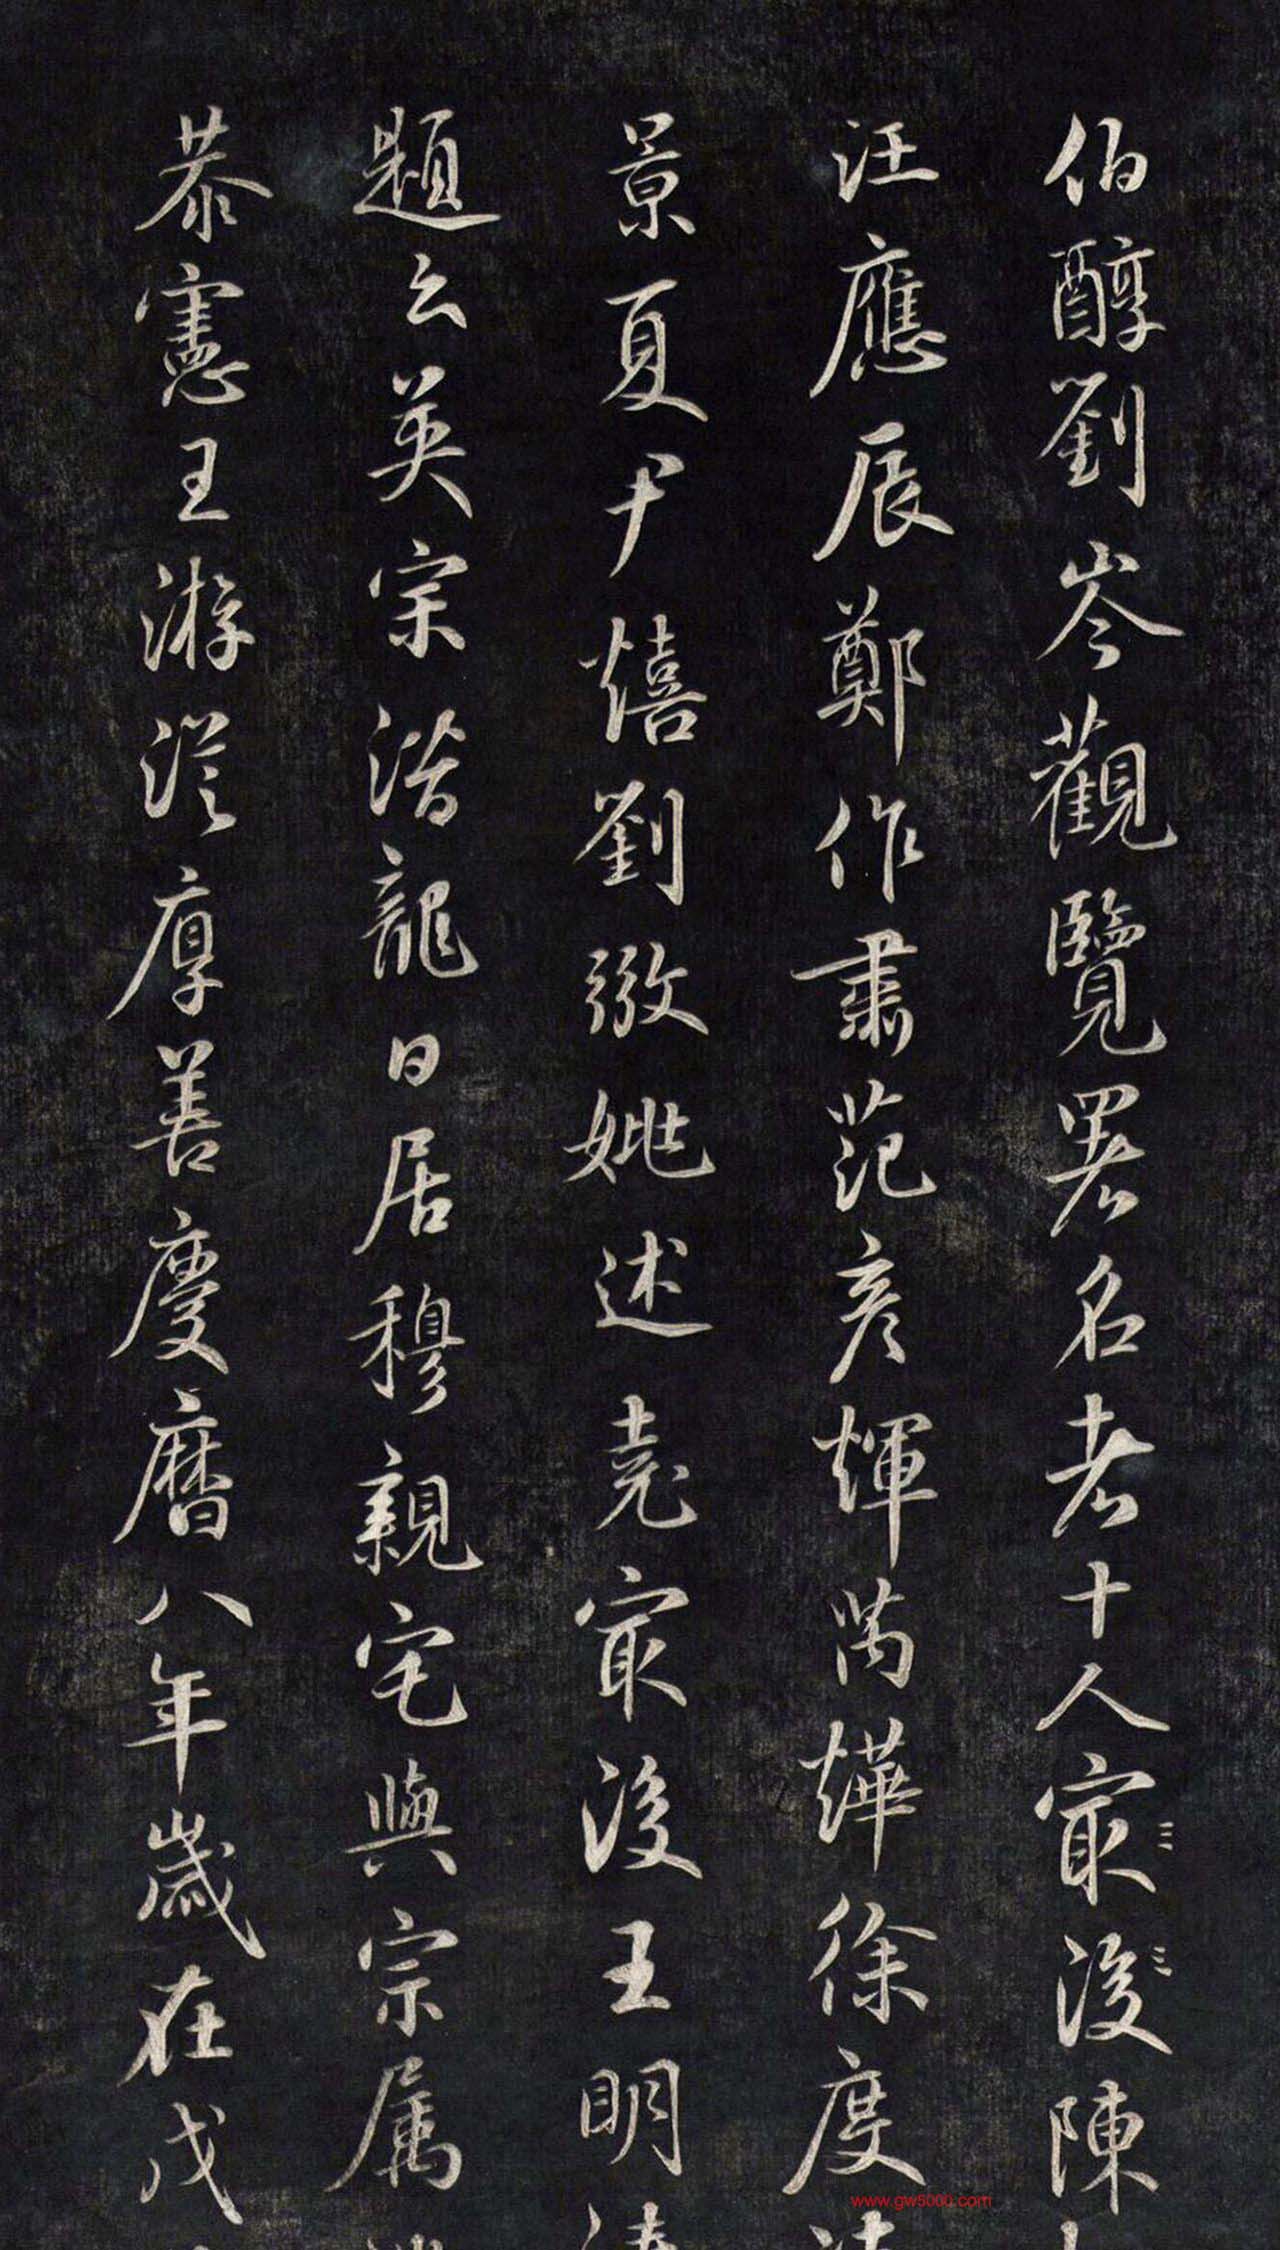 伯醇劉岑觀覽畧名者十人寂後陳
汪應辰鄭作肅范彦煇萬燁徐度
景夏尹熺劉敬姚述堯寂後王明清
題云英宗潛龍日居穆親宅與宗属
恭憲王游從厚善慶曆八年歲在戊
www.gw5000.com